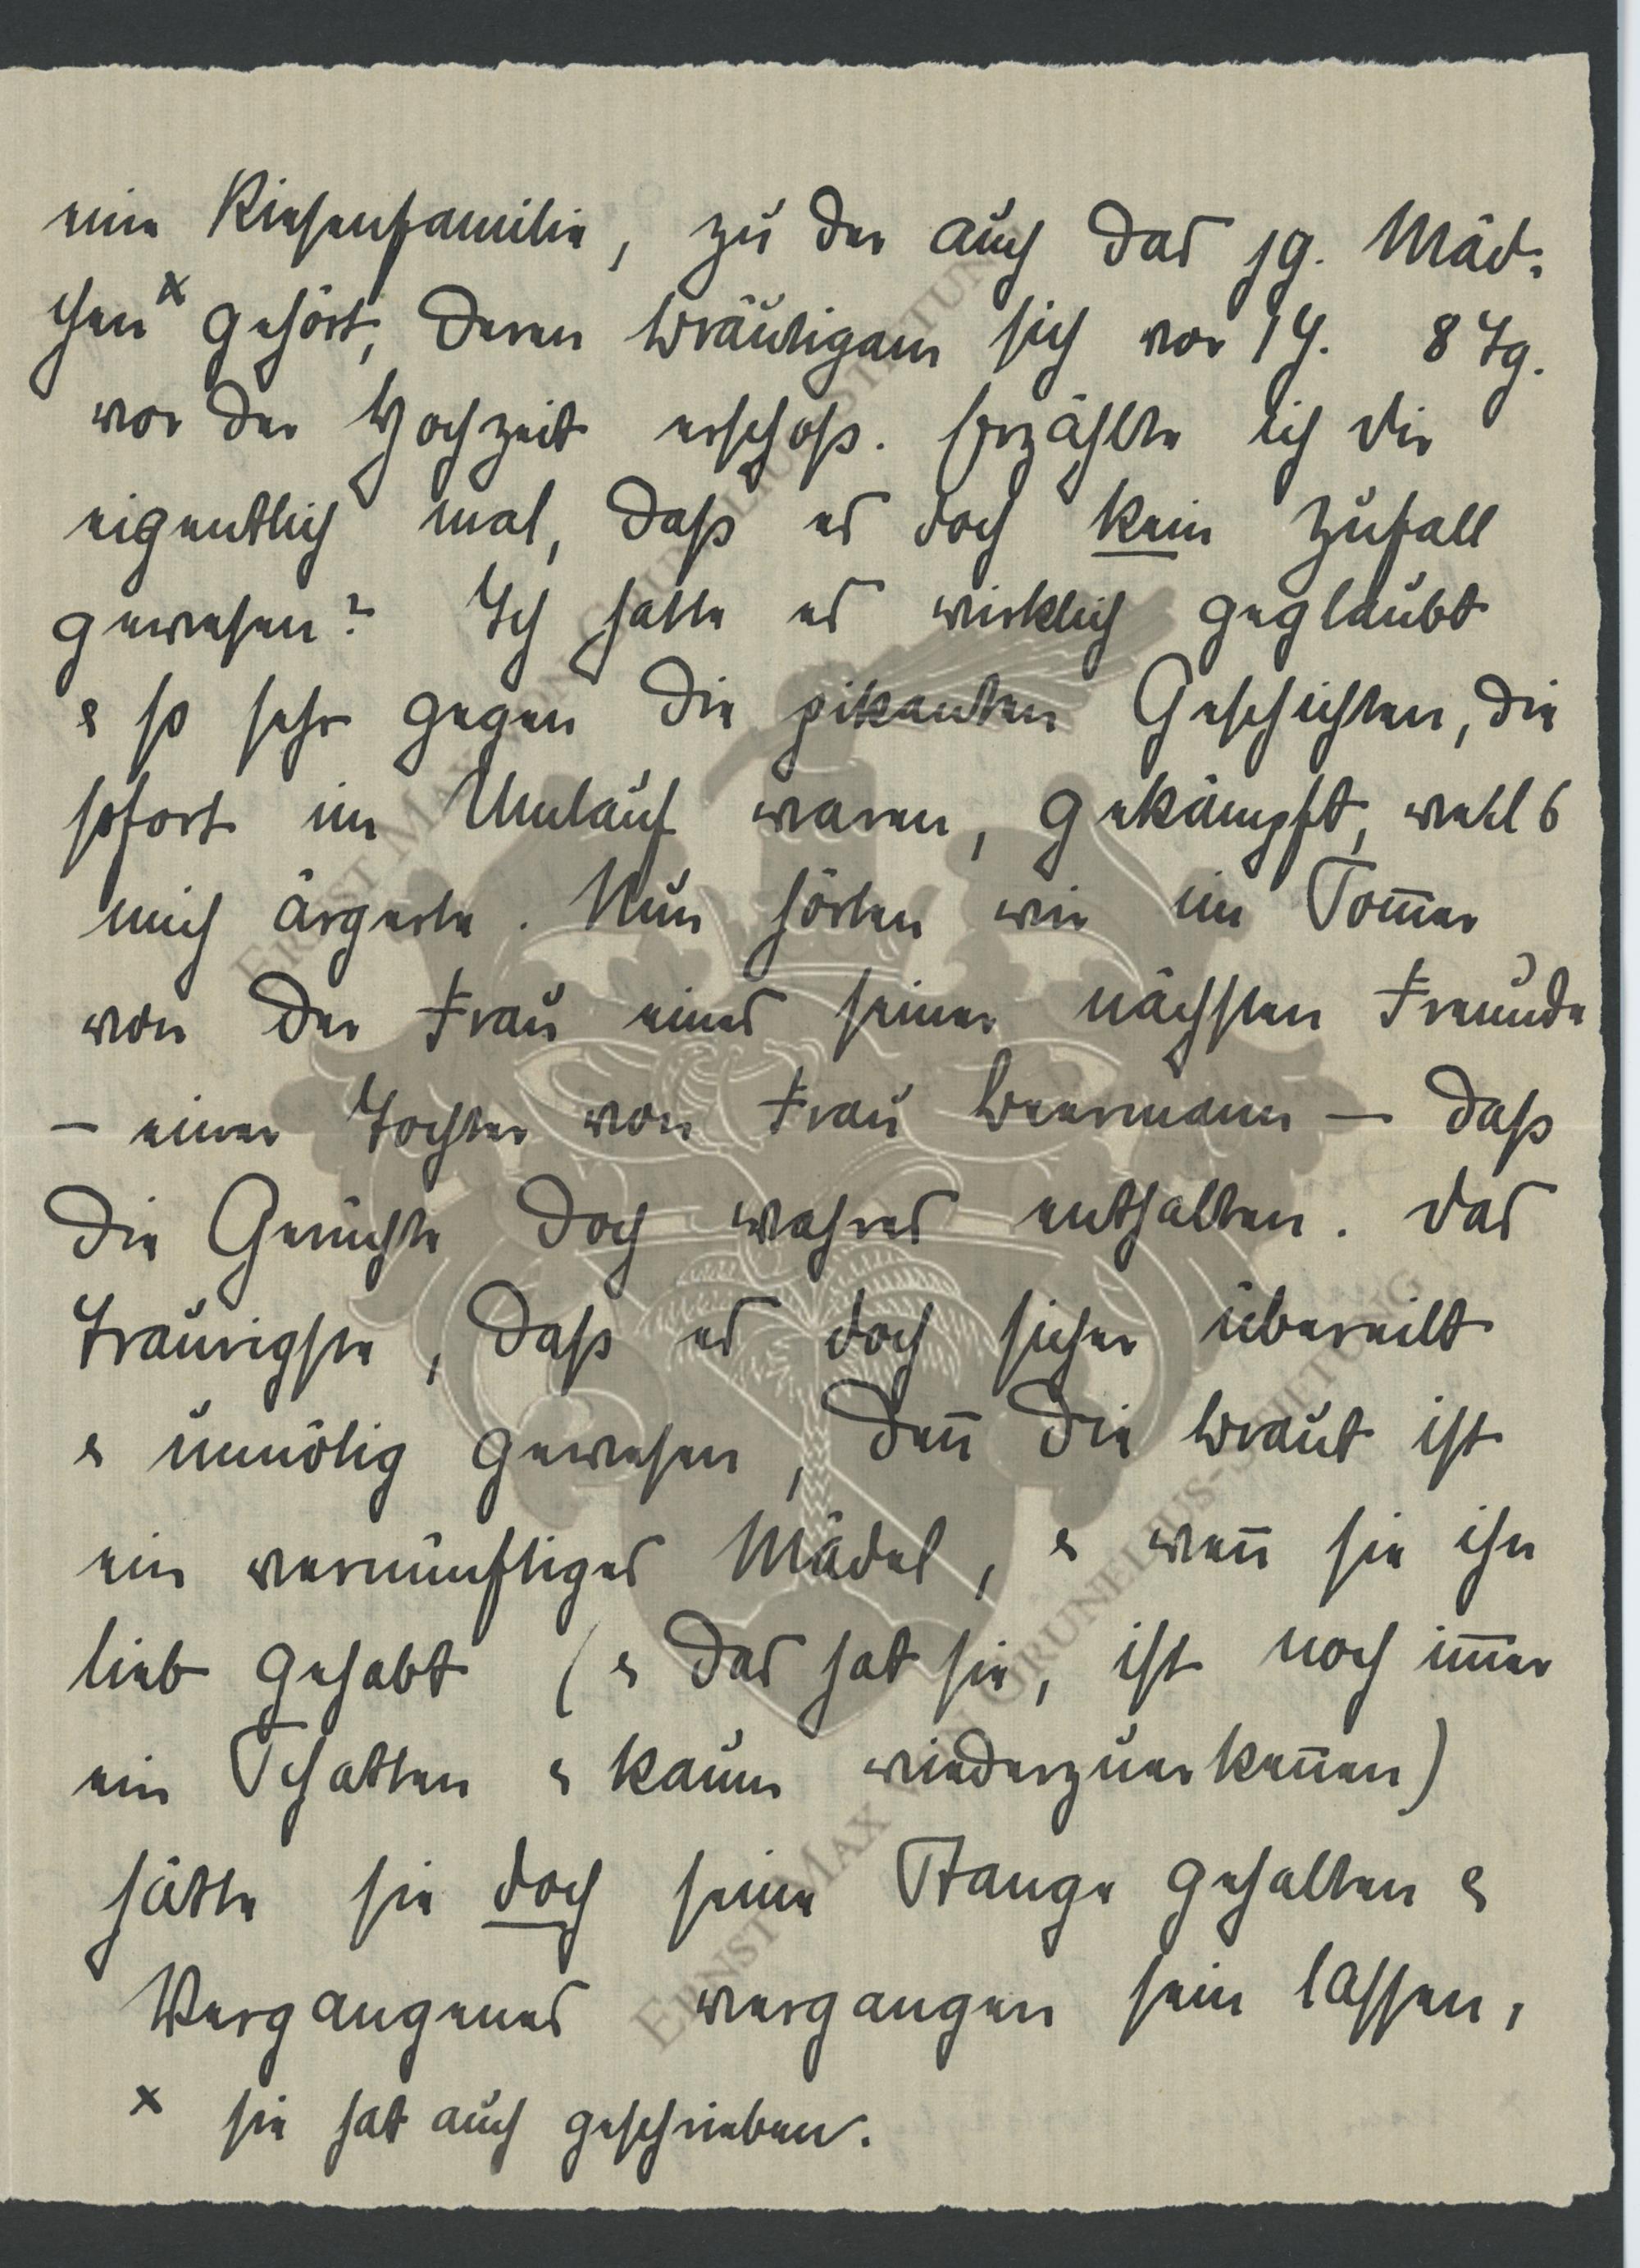 eine Riesenfamilie, zu der auch das jg. Mäd-
chen x gehört, deren Bräutigam sich vor 1 J. 8 Tg.
vor der Hochzeit erschoß. Erzählte ich dir
eigentlich mal, daß es doch kein Zufall
gewesen? Ich hatte es wirklich geglaubt
& so sehr gegen die pikanten Geschichten, die
sofort im Umlauf waren, gekämpft, weil's
mich ärgerte. Nun hörten wir im Som̅er
von der Frau eines seiner nächsten Freunde
– einer Tochter von Frau Beermann – daß
die Gerüchte doch wahres enthalten. Das
Traurigste, daß es doch sicher übereilt
& unnötig gewesen, den̅ die Braut ist
ein vernünftiges Mädel, & wen̅ sie ihn
lieb gehabt (& das hat sie, ist noch im̅er
ein Schatten & kaum wiederzuerken̅en)
hätte sie doch seine Stange gehalten &
Vergangenes vergangen sein lassen,
x sie hat auch geschrieben.
ERNST MAX VON GRUNELIUS-STIFTUNG
ERNST MAX VON GRUNELIUS-STIFTUNG